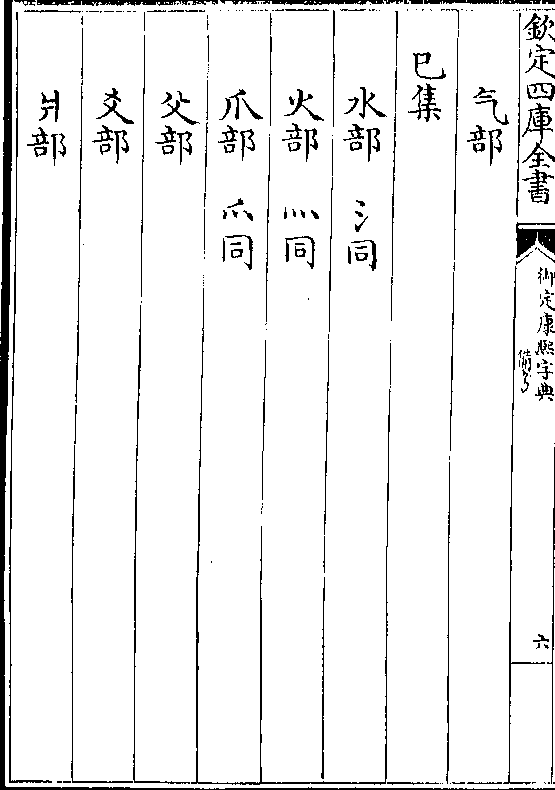 欽定四庫全書
御定康熙字典
備考
六
气部
巳集
水部 氵同
火部 灬同
爪部 爫同
父部
爻部
爿部